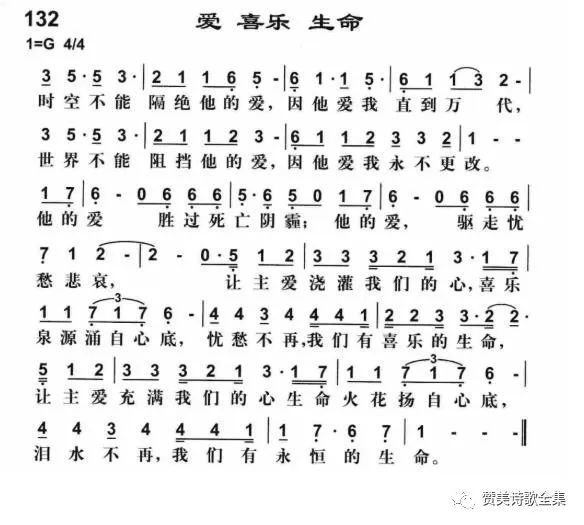 132 爱 喜乐 生命
1=G 4/4
3 5·5 3· | 2 1 1 6 5 - | 6·1 1 5· | 6 1 1 3 2 - |
时空不能 隔绝他的爱,因他爱我 直到万 代,
3 5·5 3· | 2 1 1 2 3 - | 6·1 1 2 1 2 3 3 2 | 1 - -
世界不能 阻挡他的爱,因他爱我永不更改。
1 7 | 6 - 0 6 6 6 | 5·6 5 0 1 7 | 6 - 0 6 6 6 |
他的爱 胜过死亡阴霾; 他的爱, 驱走忧
7 1 2 - | 2 - 0·5 1 2 | 3 3 3 2 1 3·1 7 |
愁悲哀, 让主爱浇灌我们的心,喜乐
1 1 7 1 7 6 - | 4 4 3 4 4 4 1 | 2 2 2 3·2 2· |
3
泉源涌自心底, 忧愁不再,我们有喜乐的生命,
5 1 2 | 3 3 3 2 1 3·1 7 | 1 1 7 1 7 6 - |
3
让主爱充满我们的心生命火花扬自心底,
4 4 3 4 | 4 4 4 1 | 1 7·6 7 | 1 - - - ‖
泪水不再,我们有永恒的生命。
赞美诗歌全集